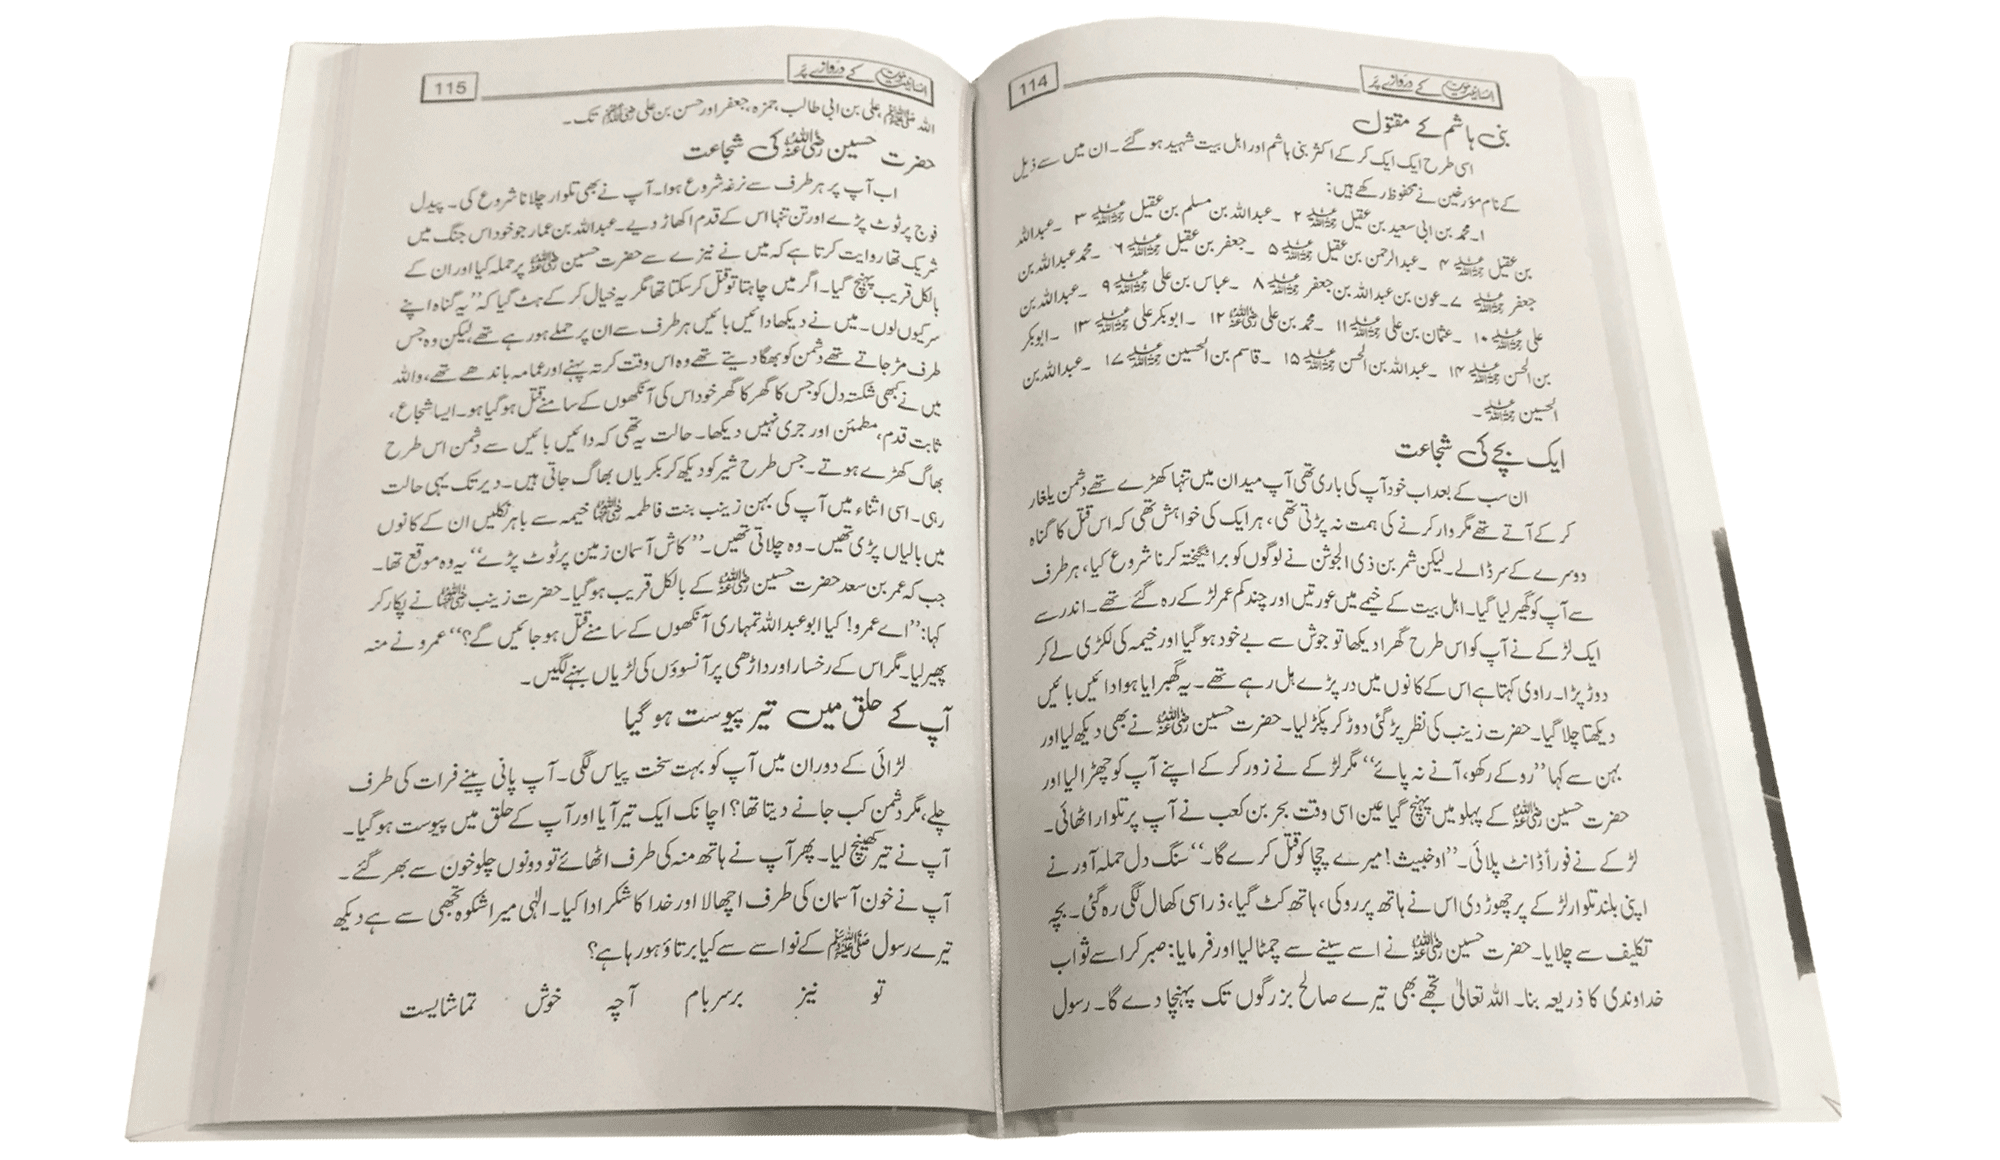 انسانیت موت کے دروازے پر
114
بنی ہاشم کے مقتول
اسی طرح ایک ایک کر کے اکثر بنی ہاشم اور اہل بیت شہید ہو گئے۔ ان میں سے ذیل
کے نام مؤرخین نے محفوظ رکھے ہیں:
۱۔ محمد بن ابی سعید بن عقیل رضی اللہ عنہ ۲ ۔عبداللہ بن مسلم بن عقیل رضی اللہ عنہ ۳ ۔عبداللہ
بن عقیل رضی اللہ عنہ ۴ ۔عبدالرحمن بن عقیل رضی اللہ عنہ ۵ ۔جعفر بن عقیل رضی اللہ عنہ ۶ ۔محمد عبداللہ بن
جعفر رضی اللہ عنہ ۷۔عون بن عبداللہ بن جعفر رضی اللہ عنہ ۸ ۔عباس بن علی رضی اللہ عنہ ۹ ۔عبداللہ بن
علی رضی اللہ عنہ ۱۰ ۔عثمان بن علی رضی اللہ عنہ ۱۱ ۔محمد بن علی رضی اللہ عنہ ۱۲ ۔ابوبکر علی رضی اللہ عنہ ۱۳ ۔ابوبکر
بن الحسن رضی اللہ عنہ ۱۴ ۔عبداللہ بن الحسن رضی اللہ عنہ ۱۵ ۔قاسم بن الحسین رضی اللہ عنہ ۱۷ ۔عبداللہ بن
الحسین رضی اللہ عنہ ۔
ایک بچے کی شجاعت
ان سب کے بعد اب خود آپ کی باری تھی آپ میدان میں تنہا کھڑے تھے دشمن یلغار
کر کے آتے تھے مگر وار کرنے کی ہمت نہ پڑتی تھی، ہر ایک کی خواہش تھی کہ اس قتل کا گناہ
دوسرے کے سر ڈالے۔ لیکن شمر بن ذی الجوشن نے لوگوں کو برانگیختہ کرنا شروع کیا، ہر طرف
سے آپ کو گھیر لیا گیا۔ اہل بیت کے خیمے میں عورتیں اور چند کم عمر لڑکے رہ گئے تھے۔ اندر سے
ایک لڑکے نے آپ کو اس طرح گھرا دیکھا تو جوش سے بے خود ہو گیا اور خیمہ کی لکڑی لے کر
دوڑ پڑا۔ راوی کہتا ہے اس کے کانوں میں در پڑے ہل رہے تھے۔ یہ گھبرایا ہوا دائیں بائیں
دیکھتا چلا گیا۔ حضرت زینب کی نظر پڑ گئی دوڑ کر پکڑ لیا۔ حضرت حسین رضی اللہ عنہ نے بھی دیکھ لیا اور
بہن سے کہا ”روکے رکھو، آنے نہ پائے“ مگر لڑکے نے زور کر کے اپنے آپ کو چھڑا لیا اور
حضرت حسین رضی اللہ عنہ کے پہلو میں پہنچ گیا عین اسی وقت بحر بن کعب نے آپ پر تلوار اٹھائی۔
لڑکے نے فوراً ڈانٹ پلائی۔ ”او خبیث! میرے چچا کو قتل کرے گا۔“ سنگ دل حملہ آور نے
اپنی بلند تلوار لڑکے پر چھوڑ دی اس نے ہاتھ پر روکی، ہاتھ کٹ گیا، ذرا سی کھال لگی رہ گئی۔ بچہ
تکلیف سے چلایا۔ حضرت حسین رضی اللہ عنہ نے اسے سینے سے چمٹا لیا اور فرمایا: صبر کر اسے ثواب
خداوندی کا ذریعہ بنا۔ اللہ تعالیٰ تجھے بھی تیرے صالح بزرگوں تک پہنچا دے گا۔ رسول
انسانیت موت کے دروازے پر
115
اللہ ﷺ، علی بن ابی طالب، حمزہ، جعفر اور حسن بن علی رضی اللہ عنہم تک۔
حضرت حسین رضی اللہ عنہ کی شجاعت
اب آپ پر ہر طرف سے نرغہ شروع ہوا۔ آپ نے بھی تلوار چلانا شروع کی۔ پیدل
فوج پر ٹوٹ پڑے اور تن تنہا اس کے قدم اکھاڑ دیے۔ عبداللہ بن عمار جو خود اس جنگ میں
شریک تھا روایت کرتا ہے کہ میں نے نیزے سے حضرت حسین رضی اللہ عنہ پر حملہ کیا اور ان کے
بالکل قریب پہنچ گیا۔ اگر میں چاہتا تو قتل کر سکتا تھا مگر یہ خیال کر کے ہٹ گیا کہ ”یہ گناہ اپنے
سر کیوں لوں۔ میں نے دیکھا دائیں بائیں ہر طرف سے ان پر حملے ہو رہے تھے، لیکن وہ جس
طرف مڑ جاتے تھے دشمن کو بھگا دیتے تھے وہ اس وقت کرتہ پہنے اور عمامہ باندھے تھے، واللہ
میں نے کبھی شکستہ دل کو جس کا گھر کا گھر خود اس کی آنکھوں کے سامنے قتل ہو گیا ہو۔ ایسا شجاع،
ثابت قدم، مطمئن اور جری نہیں دیکھا۔ حالت یہ تھی کہ دائیں بائیں سے دشمن اس طرح
بھاگ کھڑے ہوتے۔ جس طرح شیر کو دیکھ کر بکریاں بھاگ جاتی ہیں۔ دیر تک یہی حالت
رہی۔ اسی اثناء میں آپ کی بہن زینب بنت فاطمہ رضی اللہ عنہا خیمہ سے باہر نکلیں ان کے کانوں
میں بالیاں پڑی تھیں۔ وہ چلاتی تھیں۔ ”کاش آسمان زمین پر ٹوٹ پڑے“ یہ وہ موقع تھا۔
جب کہ عمر بن سعد حضرت حسین رضی اللہ عنہ کے بالکل قریب ہو گیا۔ حضرت زینب رضی اللہ عنہا نے پکار کر
کہا: ”اے عمرو! کیا ابو عبداللہ تمہاری آنکھوں کے سامنے قتل ہو جائیں گے؟“ عمرو نے منہ
پھیر لیا۔ مگر اس کے رخسار اور داڑھی پر آنسوؤں کی لڑیاں بہنے لگیں۔
آپ کے حلق میں تیر پیوست ہو گیا
لڑائی کے دوران میں آپ کو بہت سخت پیاس لگی۔ آپ پانی پینے فرات کی طرف
چلے، مگر دشمن کب جانے دیتا تھا؟ اچانک ایک تیر آیا اور آپ کے حلق میں پیوست ہو گیا۔
آپ نے تیر کھینچ لیا۔ پھر آپ نے ہاتھ منہ کی طرف اٹھائے تو دونوں چلو خون سے بھر گئے۔
آپ نے خون آسمان کی طرف اچھالا اور خدا کا شکر ادا کیا۔ الٰہی میرا شکوہ تجھی سے ہے دیکھ
تیرے رسول ﷺ کے نواسے سے کیا برتاؤ ہو رہا ہے؟
تو نیز برسر بام آ چہ خوش تماشایست